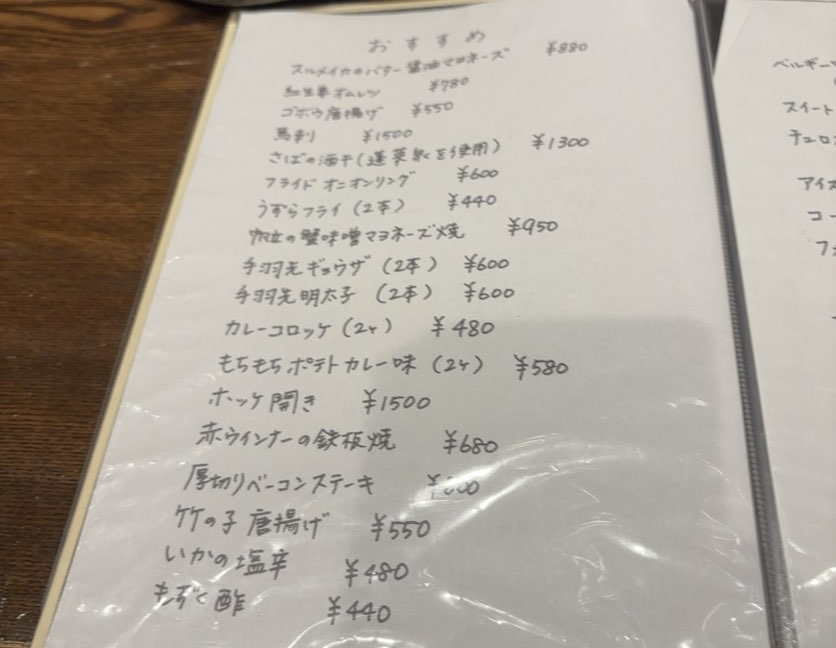 おすすめ
スルメイカのバター醤油マヨネーズ ¥880
紅生姜オムレツ ¥780
ゴボウ唐揚げ ¥550
馬刺 ¥1500
さばの酒干(蓬莱泉を使用) ¥1300
フライドオニオンリング ¥600
うずらフライ(2本) ¥440
帆立の蟹味噌マヨネーズ焼 ¥950
手羽先ギョウザ(2本) ¥600
手羽先明太子(2本) ¥600
カレーコロッケ(2ヶ) ¥480
もちもちポテトカレー味(2ヶ) ¥580
ホッケ開き ¥1500
赤ウインナーの鉄板焼 ¥680
厚切りベーコンステーキ
竹の子唐揚げ ¥550
いかの塩辛 ¥480
もずく酢 ¥440
ベルギー
スイート
チュロ
アイス
コー